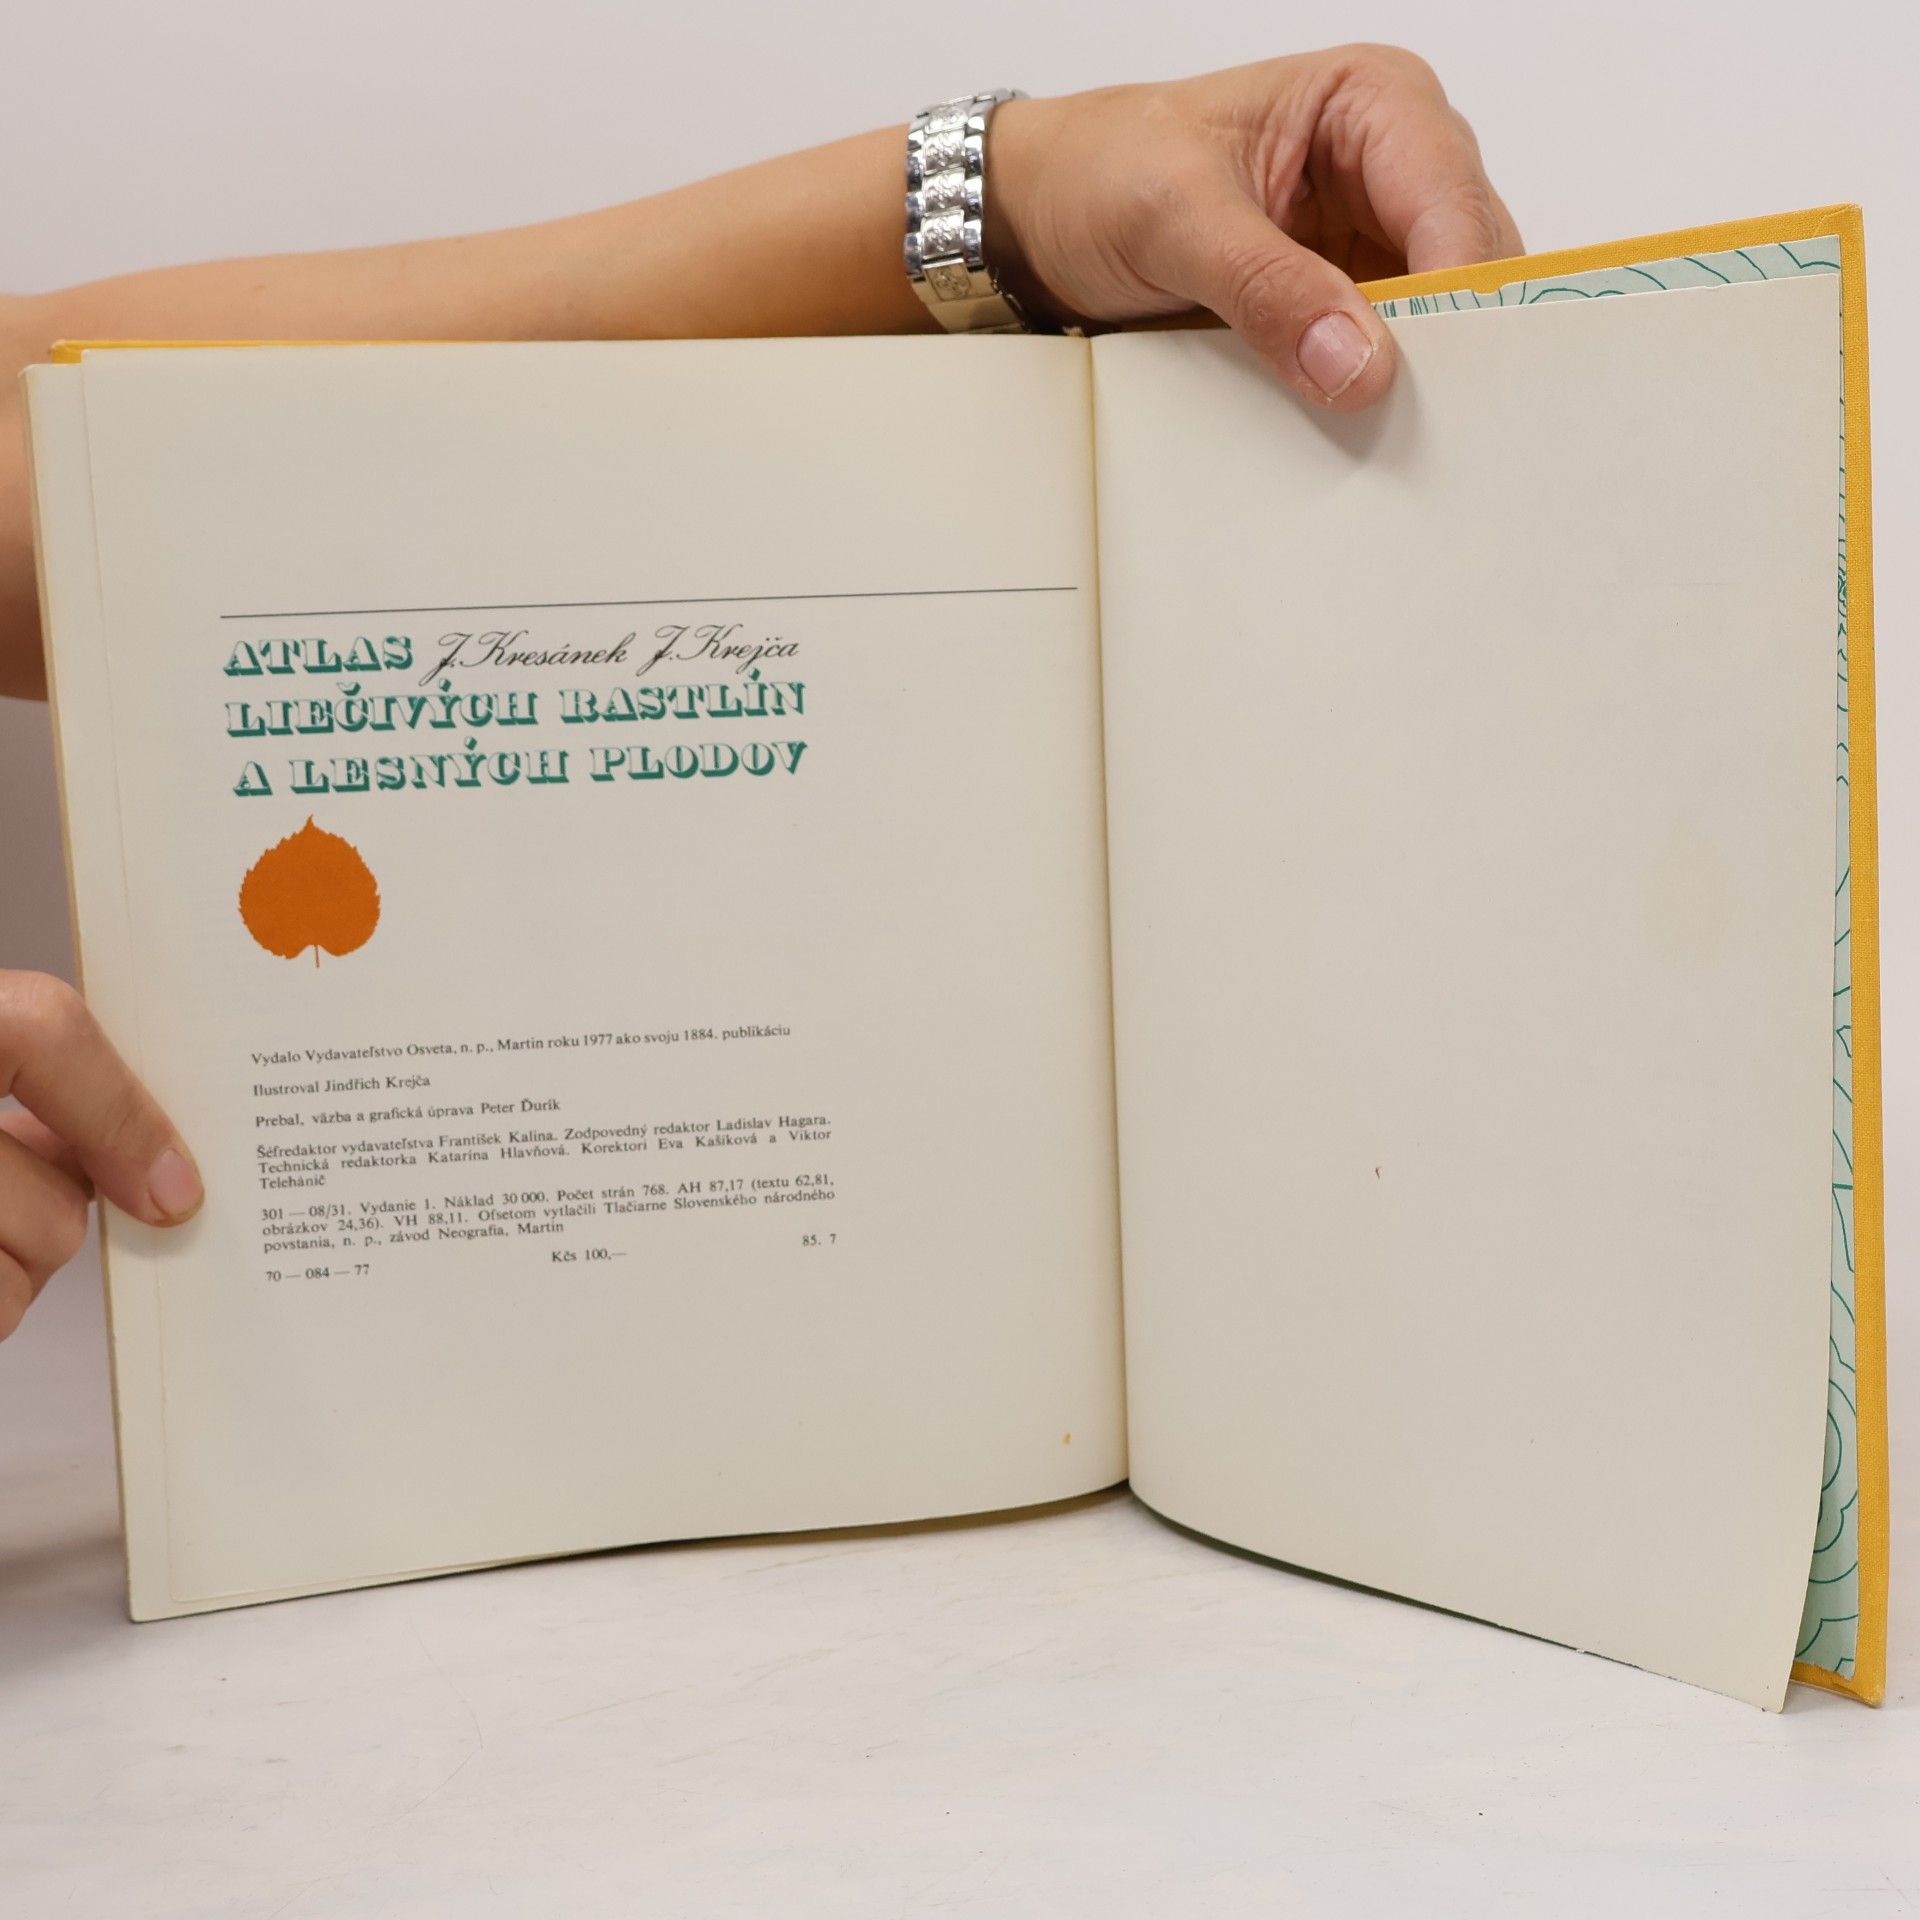 ATLAS J. Kresánek J. Krejča
LIEČIVÝCH RASTLÍN
A LESNÝCH PLODOV
Vydalo Vydavateľstvo Osveta, n. p., Martin roku 1977 ako svoju 1884. publikáciu
Ilustroval Jindřich Krejča
Prebal, väzba a grafická úprava Peter Ďurík
Šéfredaktor vydavateľstva František Kalina. Zodpovedný redaktor Ladislav Hagara.
Technická redaktorka Katarína Hlavňová. Korektori Eva Kašíková a Viktor
Telehánič
301 — 08/31. Vydanie 1. Náklad 30 000. Počet strán 768. AH 87,17 (textu 62,81,
obrázkov 24,36). VH 88,11. Ofsetom vytlačili Tlačiarne Slovenského národného
povstania, n. p., závod Neografia, Martin
70 — 084 — 77 Kčs 100,— 85. 7